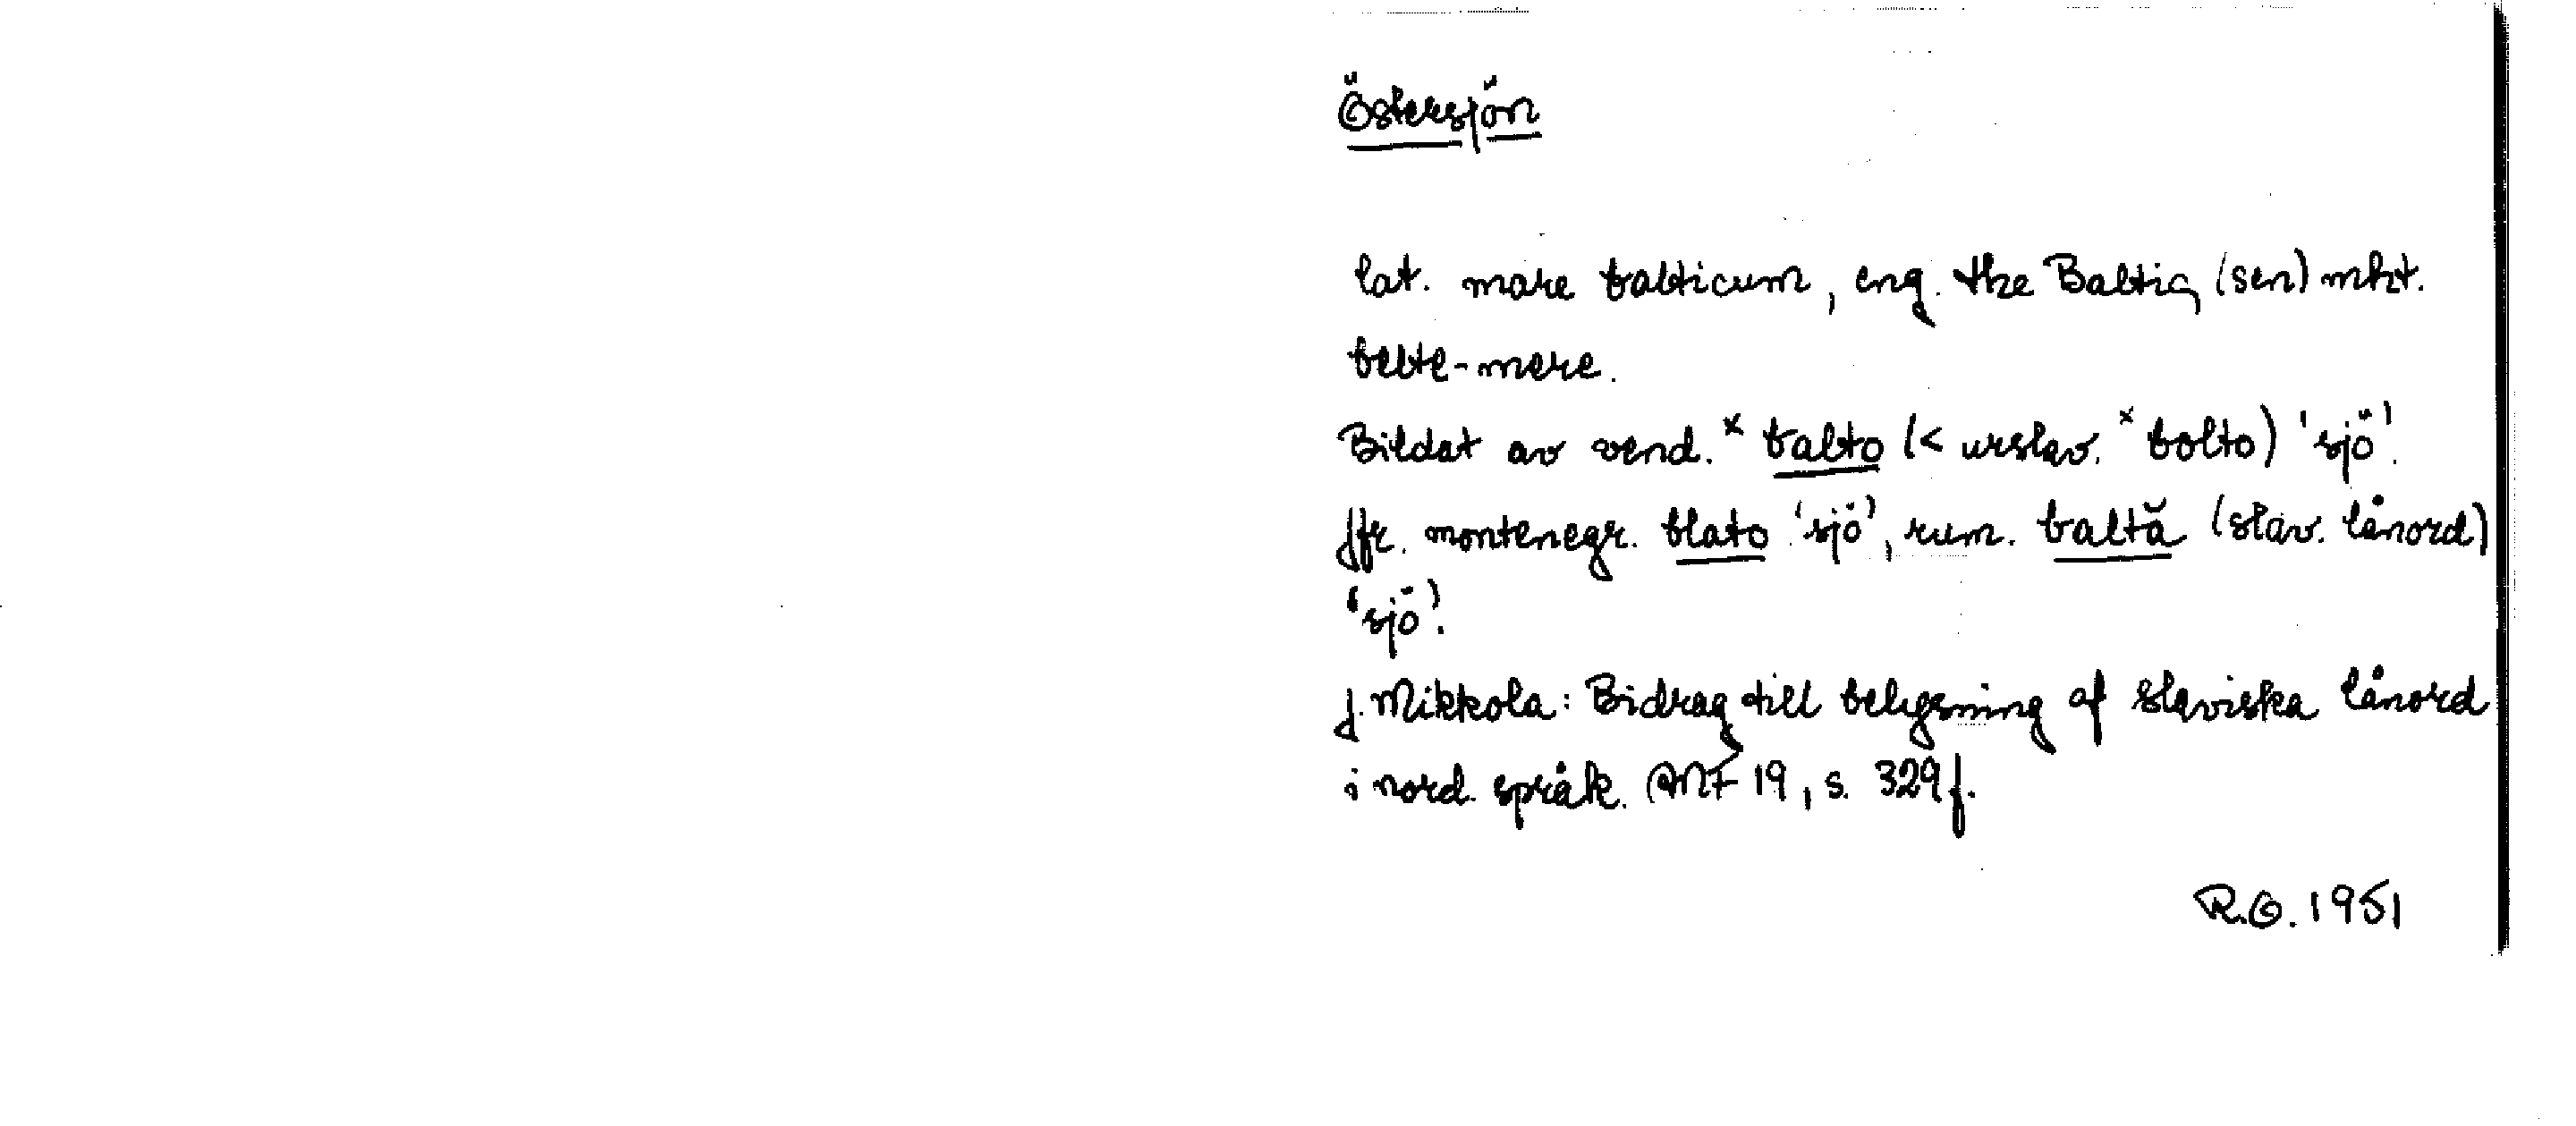 Östersjön
lat. mare balticum, eng. the Baltic, (sen) mht.
belte-mere.
Bildat av vend. ˣbalto (< urslav. ˣbolto) 'sjö'.
Jfr. montenegr. blato 'sjö', rum. baltă (slav. lånord)
'sjö'.
J. Mikkola: Bidrag till belysning af slaviska lånord
i nord. språk. ANF 19, s. 329 f.
R.O. 1951